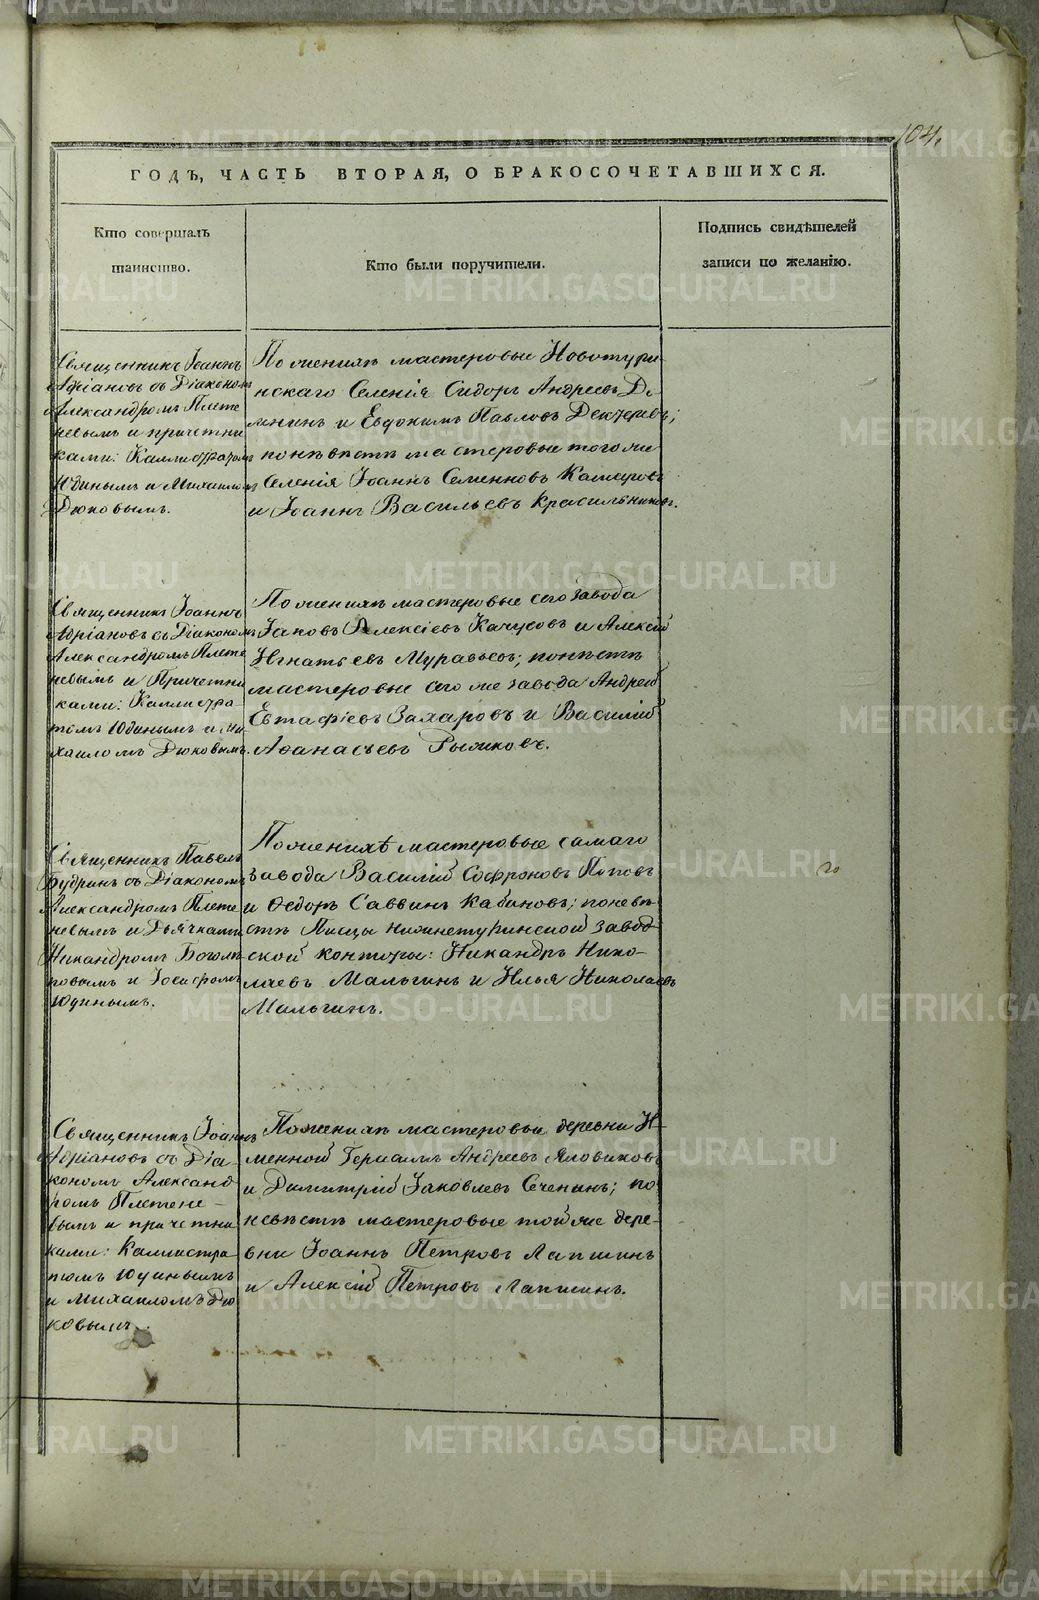 104.
ГОДЪ, ЧАСТЬ ВТОРАЯ, О БРАКОСОЧЕТАВШИХСЯ.
Кто совершалъ
таинство.
Кто были поручители.
Подпись свидѣтелей
записи по желанію.
Священникъ Іоаннъ
Адріановъ съ Діакономъ
Александромъ Плете
невымъ и причетни
ками: Каллистратомъ
Юдинымъ и Михаиломъ
Дюковымъ.
По женихѣ мастеровые Новотури
нскаго Селенія Сидоръ Андреевъ Де
менинъ и Евдокимъ Павловъ
по невѣстѣ мастеровые того же
Селенія Іоаннъ Семеновъ
и Іоаннъ Васильевъ Красильниковъ.
Священникъ Іоаннъ
Адріановъ съ Діакономъ
Александромъ Плете
невымъ и Причетни
ками: Каллистра-
томъ Юдинымъ и Ми
хаиломъ Дюковымъ.
По женихѣ мастеровые сего завода
Іаковъ Алексіевъ Качусовъ и Алексій
Игнатьевъ Муравьевъ; по невѣстѣ
мастеровые сего же завода Андрей
Евтафіевъ Захаровъ и Василій
Афанасьевъ Рыжковъ.
Священникъ Павелъ
Будринъ съ Діакономъ
Александромъ Плете
невымъ и Дьячками
Никандромъ Боголѣ
повымъ и Іосифомъ
Юдинымъ.
По женихѣ мастеровые самаго
завода Василій Софроновъ Поповъ
и Ѳедоръ Саввинъ Кабановъ; по невѣ
стѣ Писцы нижнетуринской завод
ской конторы: Никандръ Нико-
лаевъ Мальгинъ и Илья Николаевъ
Мальгинъ.
Священникъ Іоаннъ
Адріановъ съ Діа-
кономъ Александ
ромъ Плетене-
вымъ и причетни
ками: Каллистра-
томъ Юдинымъ
и Михаиломъ Дю
ковымъ.
По женихѣ мастеровые деревни И-
менной Герасимъ Андреевъ Яловиковъ
и Димитрій Іаковлевъ Сеченинъ; по
невѣстѣ мастеровые той же дере-
вни Іоаннъ Петровъ Лапшинъ
и Алексій Петровъ Лапшинъ.